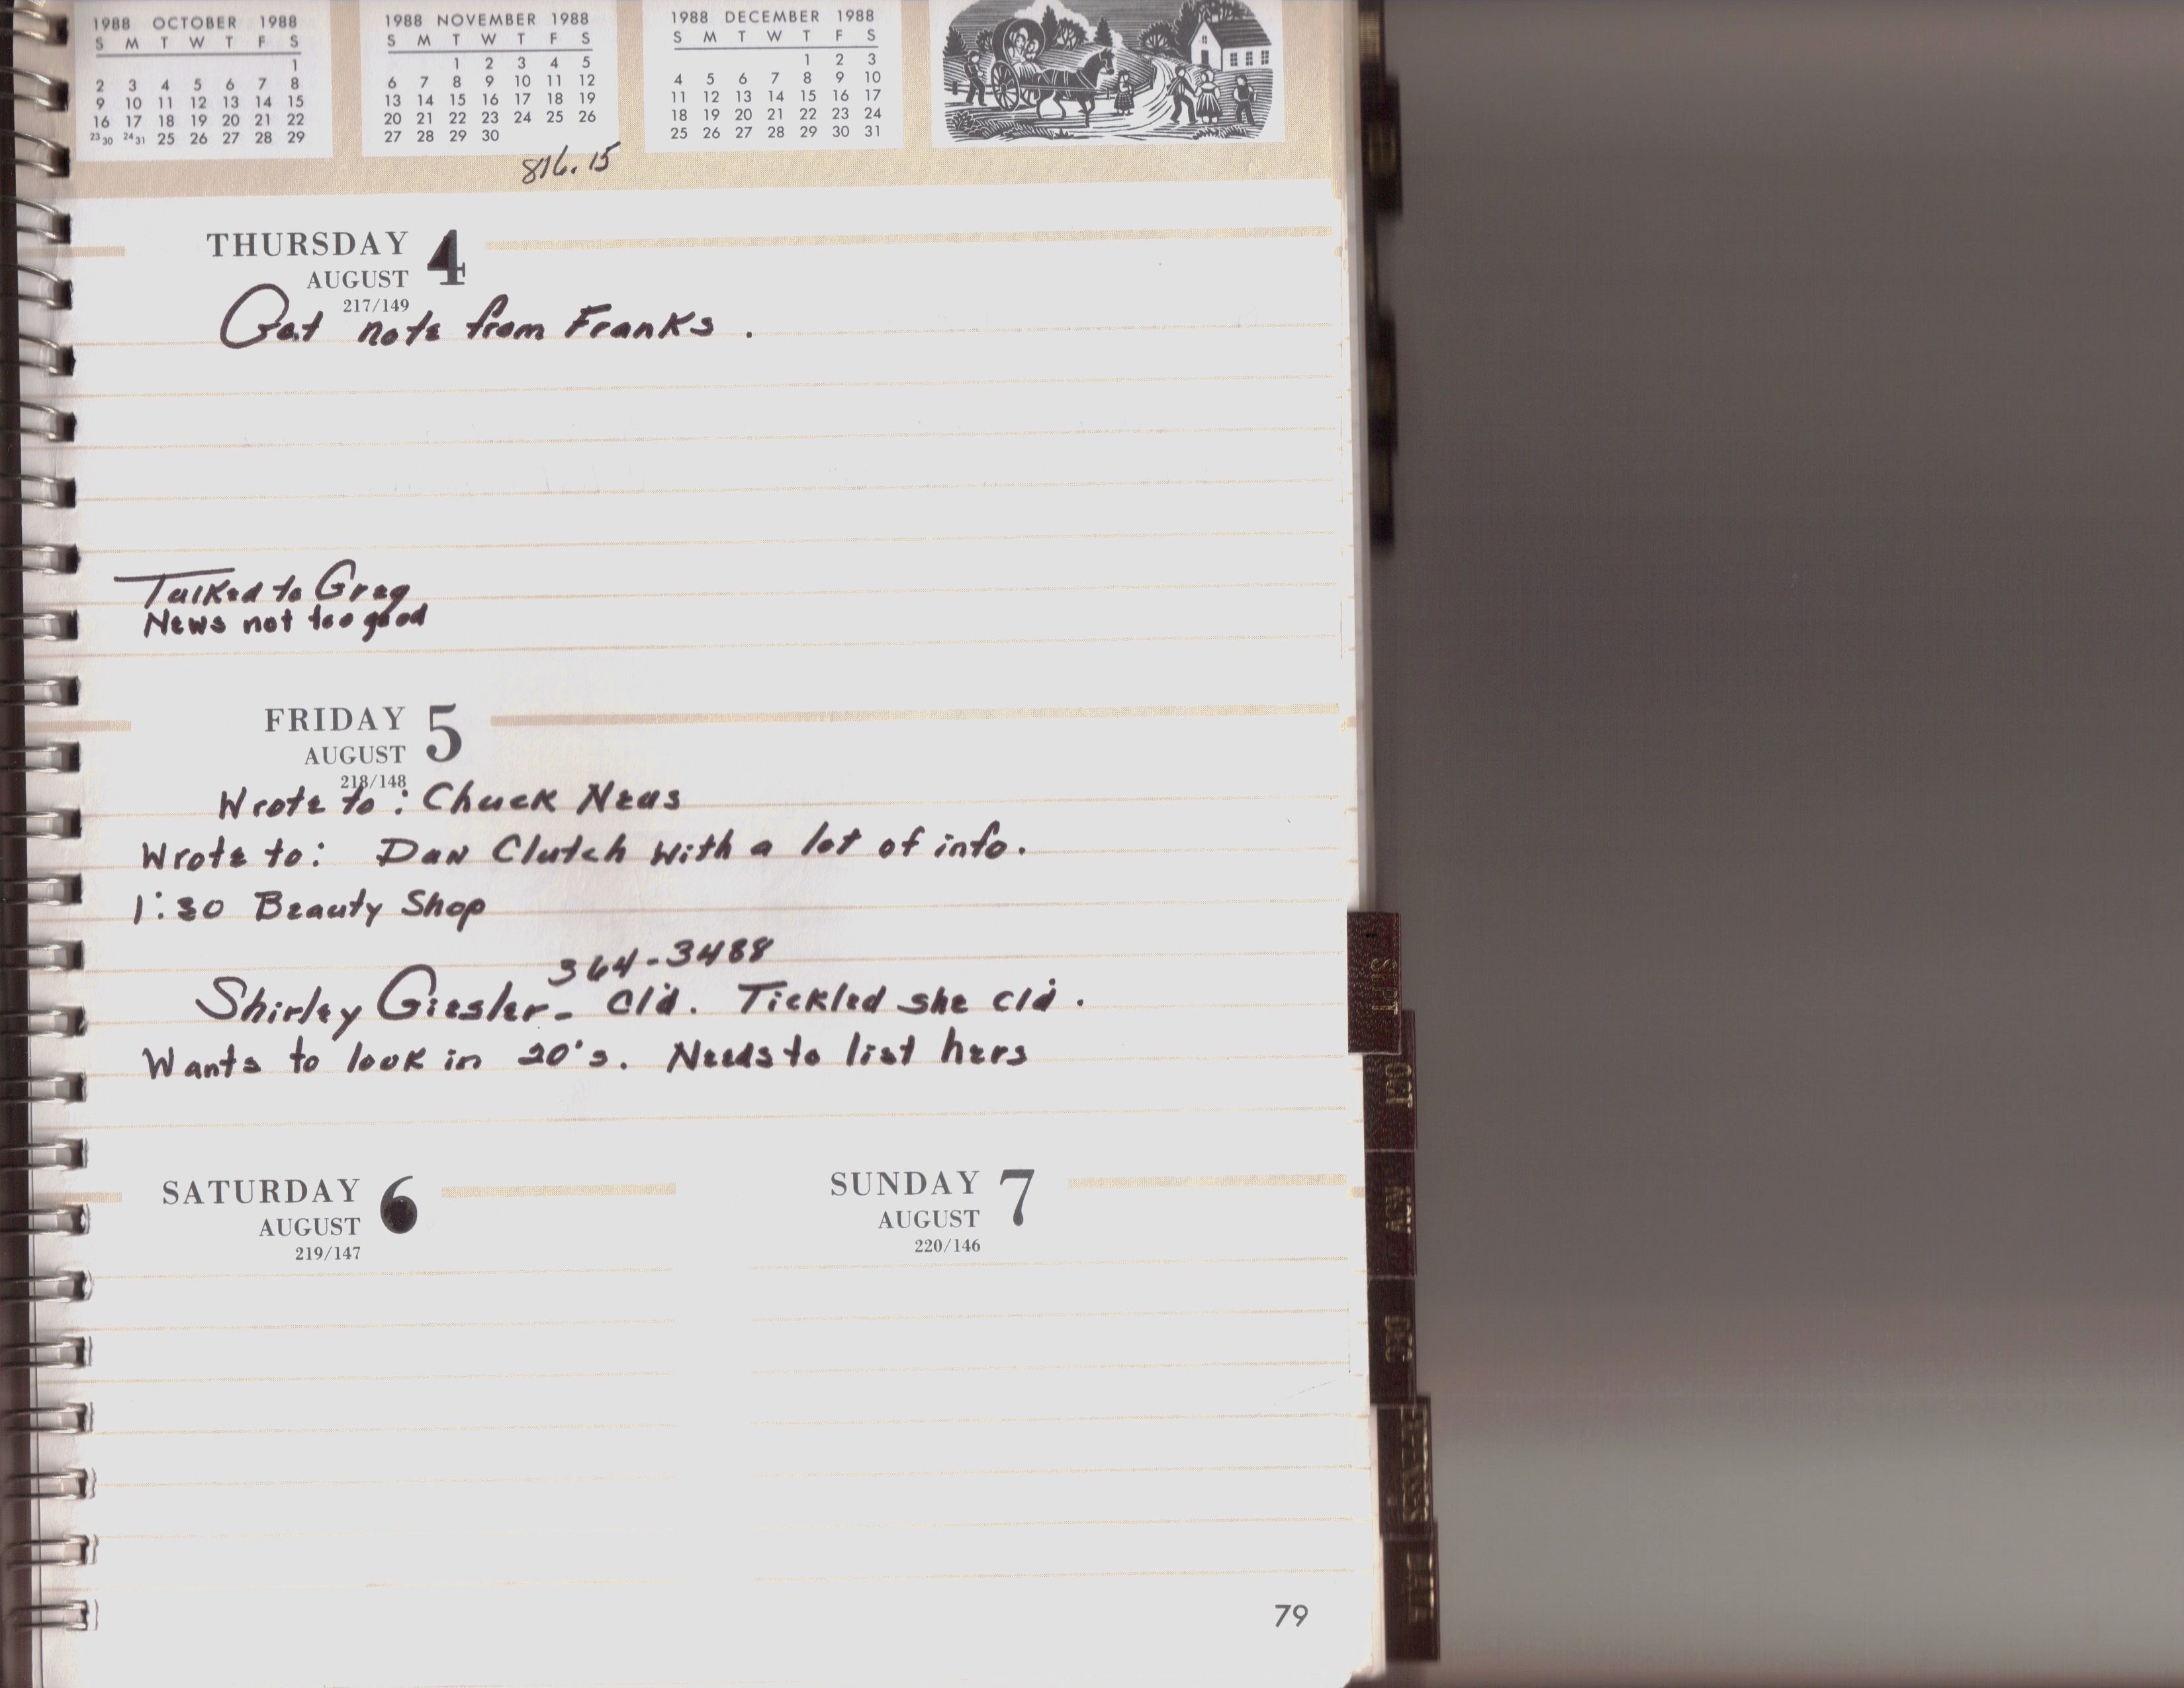 1988 OCTOBER 1988
S M T W T F S
1
2 3 4 5 6 7 8
9 10 11 12 13 14 15
16 17 18 19 20 21 22
23 30 24 31 25 26 27 28 29
1988 NOVEMBER 1988
S M T W T F S
1 2 3 4 5
6 7 8 9 10 11 12
13 14 15 16 17 18 19
20 21 22 23 24 25 26
27 28 29 30
1988 DECEMBER 1988
S M T W T F S
1 2 3
4 5 6 7 8 9 10
11 12 13 14 15 16 17
18 19 20 21 22 23 24
25 26 27 28 29 30 31
816.15
THURSDAY 4
AUGUST
217/149
Got note from Franks .
Talked to Greg
News not too good
FRIDAY 5
AUGUST
218/148
Wrote to : Chuck Neas
Wrote to: Dan Clutch with a lot of info.
1:30 Beauty Shop
364-3488
Shirley Giesler - Cl'd. Tickled she cl'd .
Wants to look in 20's. Needs to list hers
SATURDAY 6
AUGUST
219/147
SUNDAY 7
AUGUST
220/146
79
SEPT
OCT
NOV
DEC